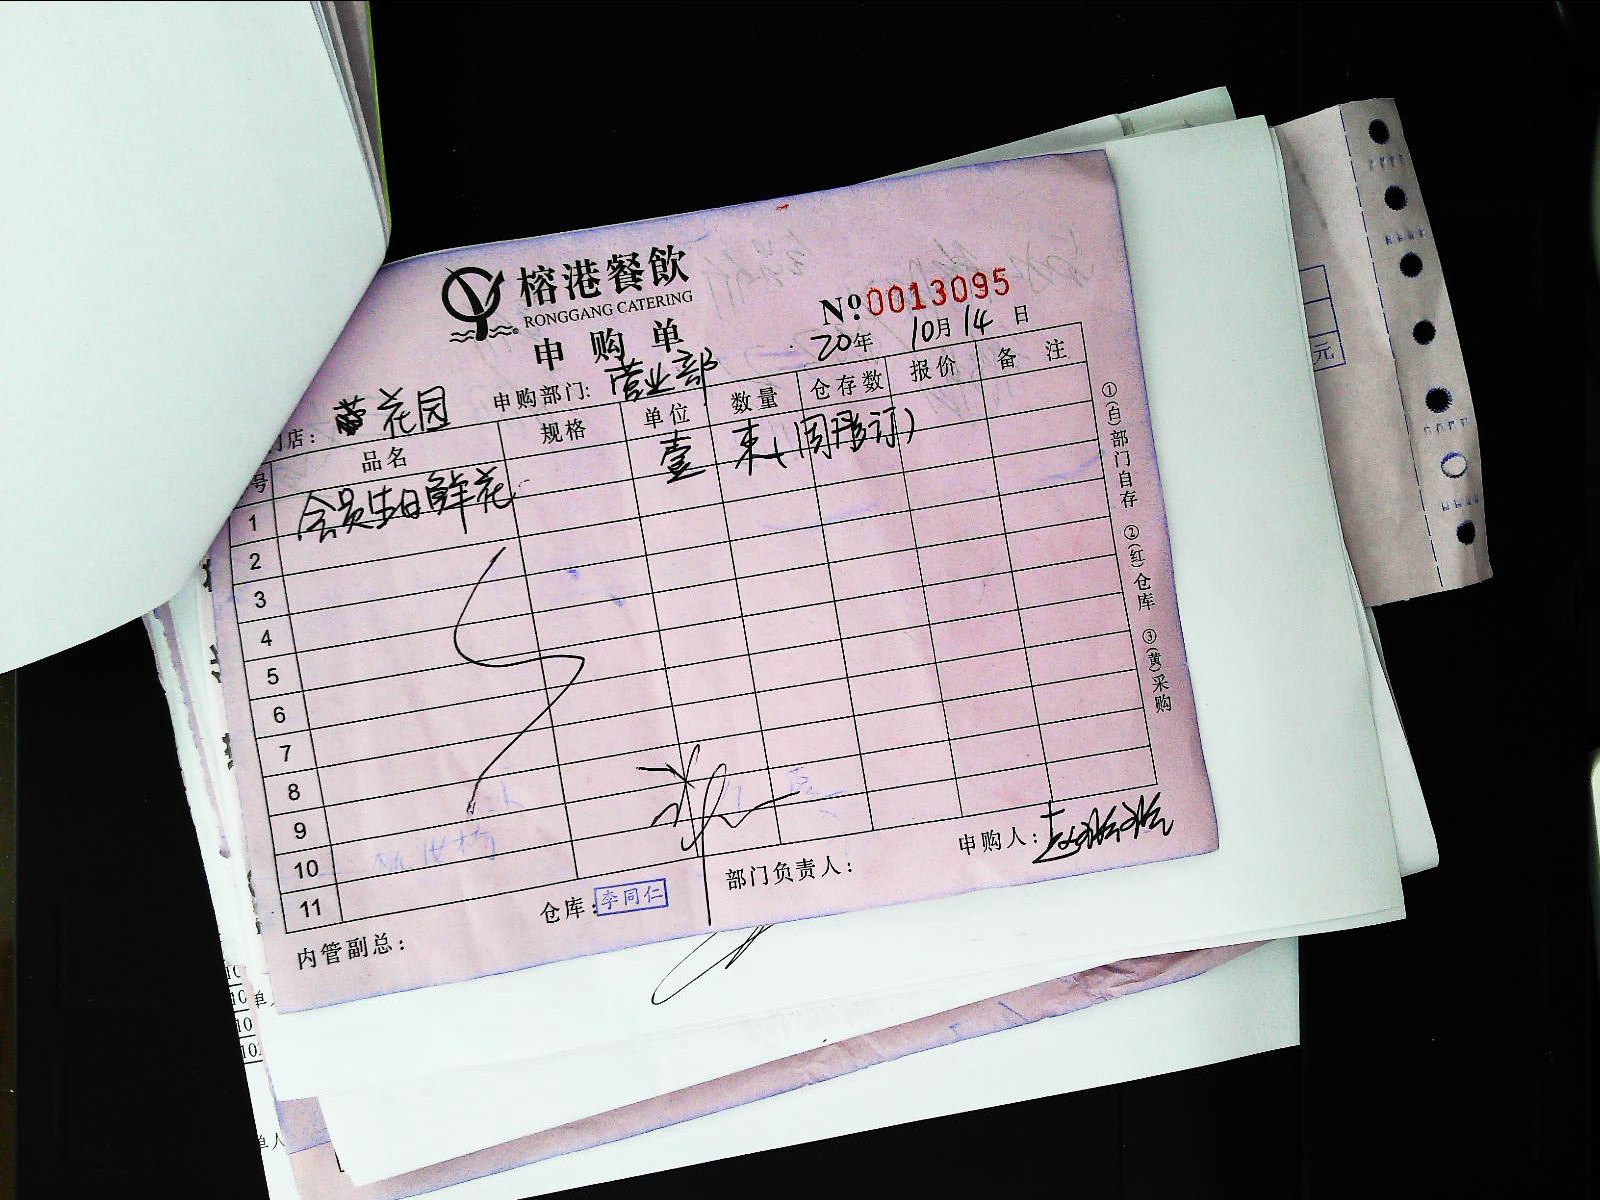 榕港餐飲
RONGGANG CATERING
申购单
№0013095
20年 10月14日
店: 花园 申购部门: 营业部
号 品名 规格 单位 数量 仓存数 报价 备注
1 会员生日鲜花 壹 束(周彤订)
2
3
4
5
6
7
8
9
10
11
内管副总:
仓库: 李同仁
部门负责人:
申购人:
①(白)部门自存 ②(红)仓库 ③(黄)采购
元
10
10
10
单人